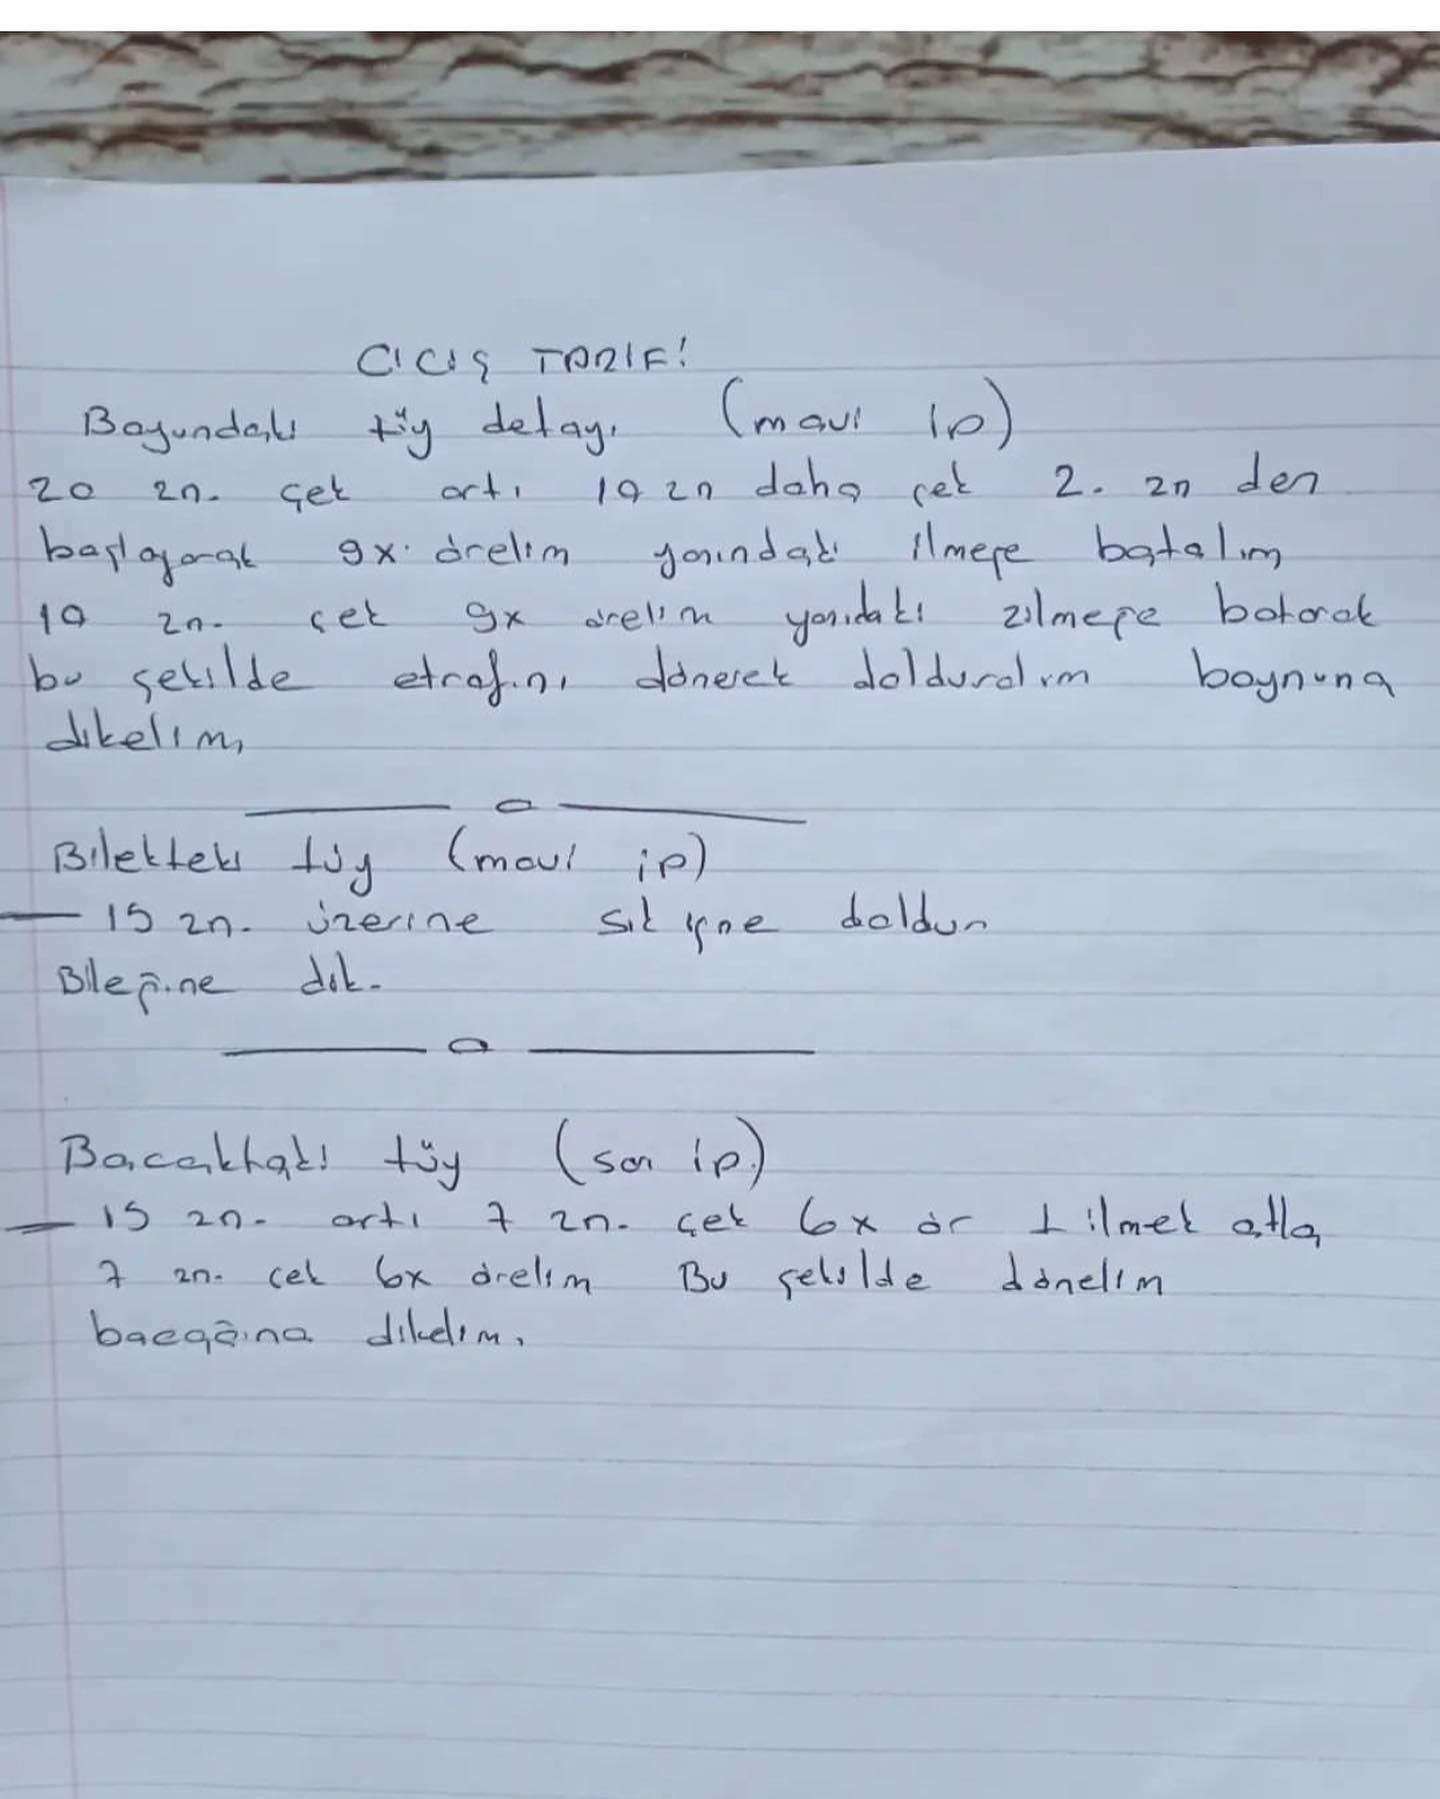 CICIŞ TARIF!
Boyundaki tüy detayı (mavi ip)
20 zn. çek artı 10 zn daha çek 2. zn den
başlayarak 9x örelim yanındaki ilmeğe batalım
10 zn. çek 9x örelim yanıdaki zilmeğe batarak
bu şekilde etrafını dönerek dolduralım boynuna
dikelim,
Bilekteki tüy (mavi ip)
— 15 zn. üzerine sık iğne doldur
Bileğine dik.
Bacaktaki tüy (sarı ip)
— 15 zn. artı 7 zn. çek 6x ör 1 ilmek atla
7 zn. çek 6x örelim Bu şekilde dönelim
bacağına dikelim.